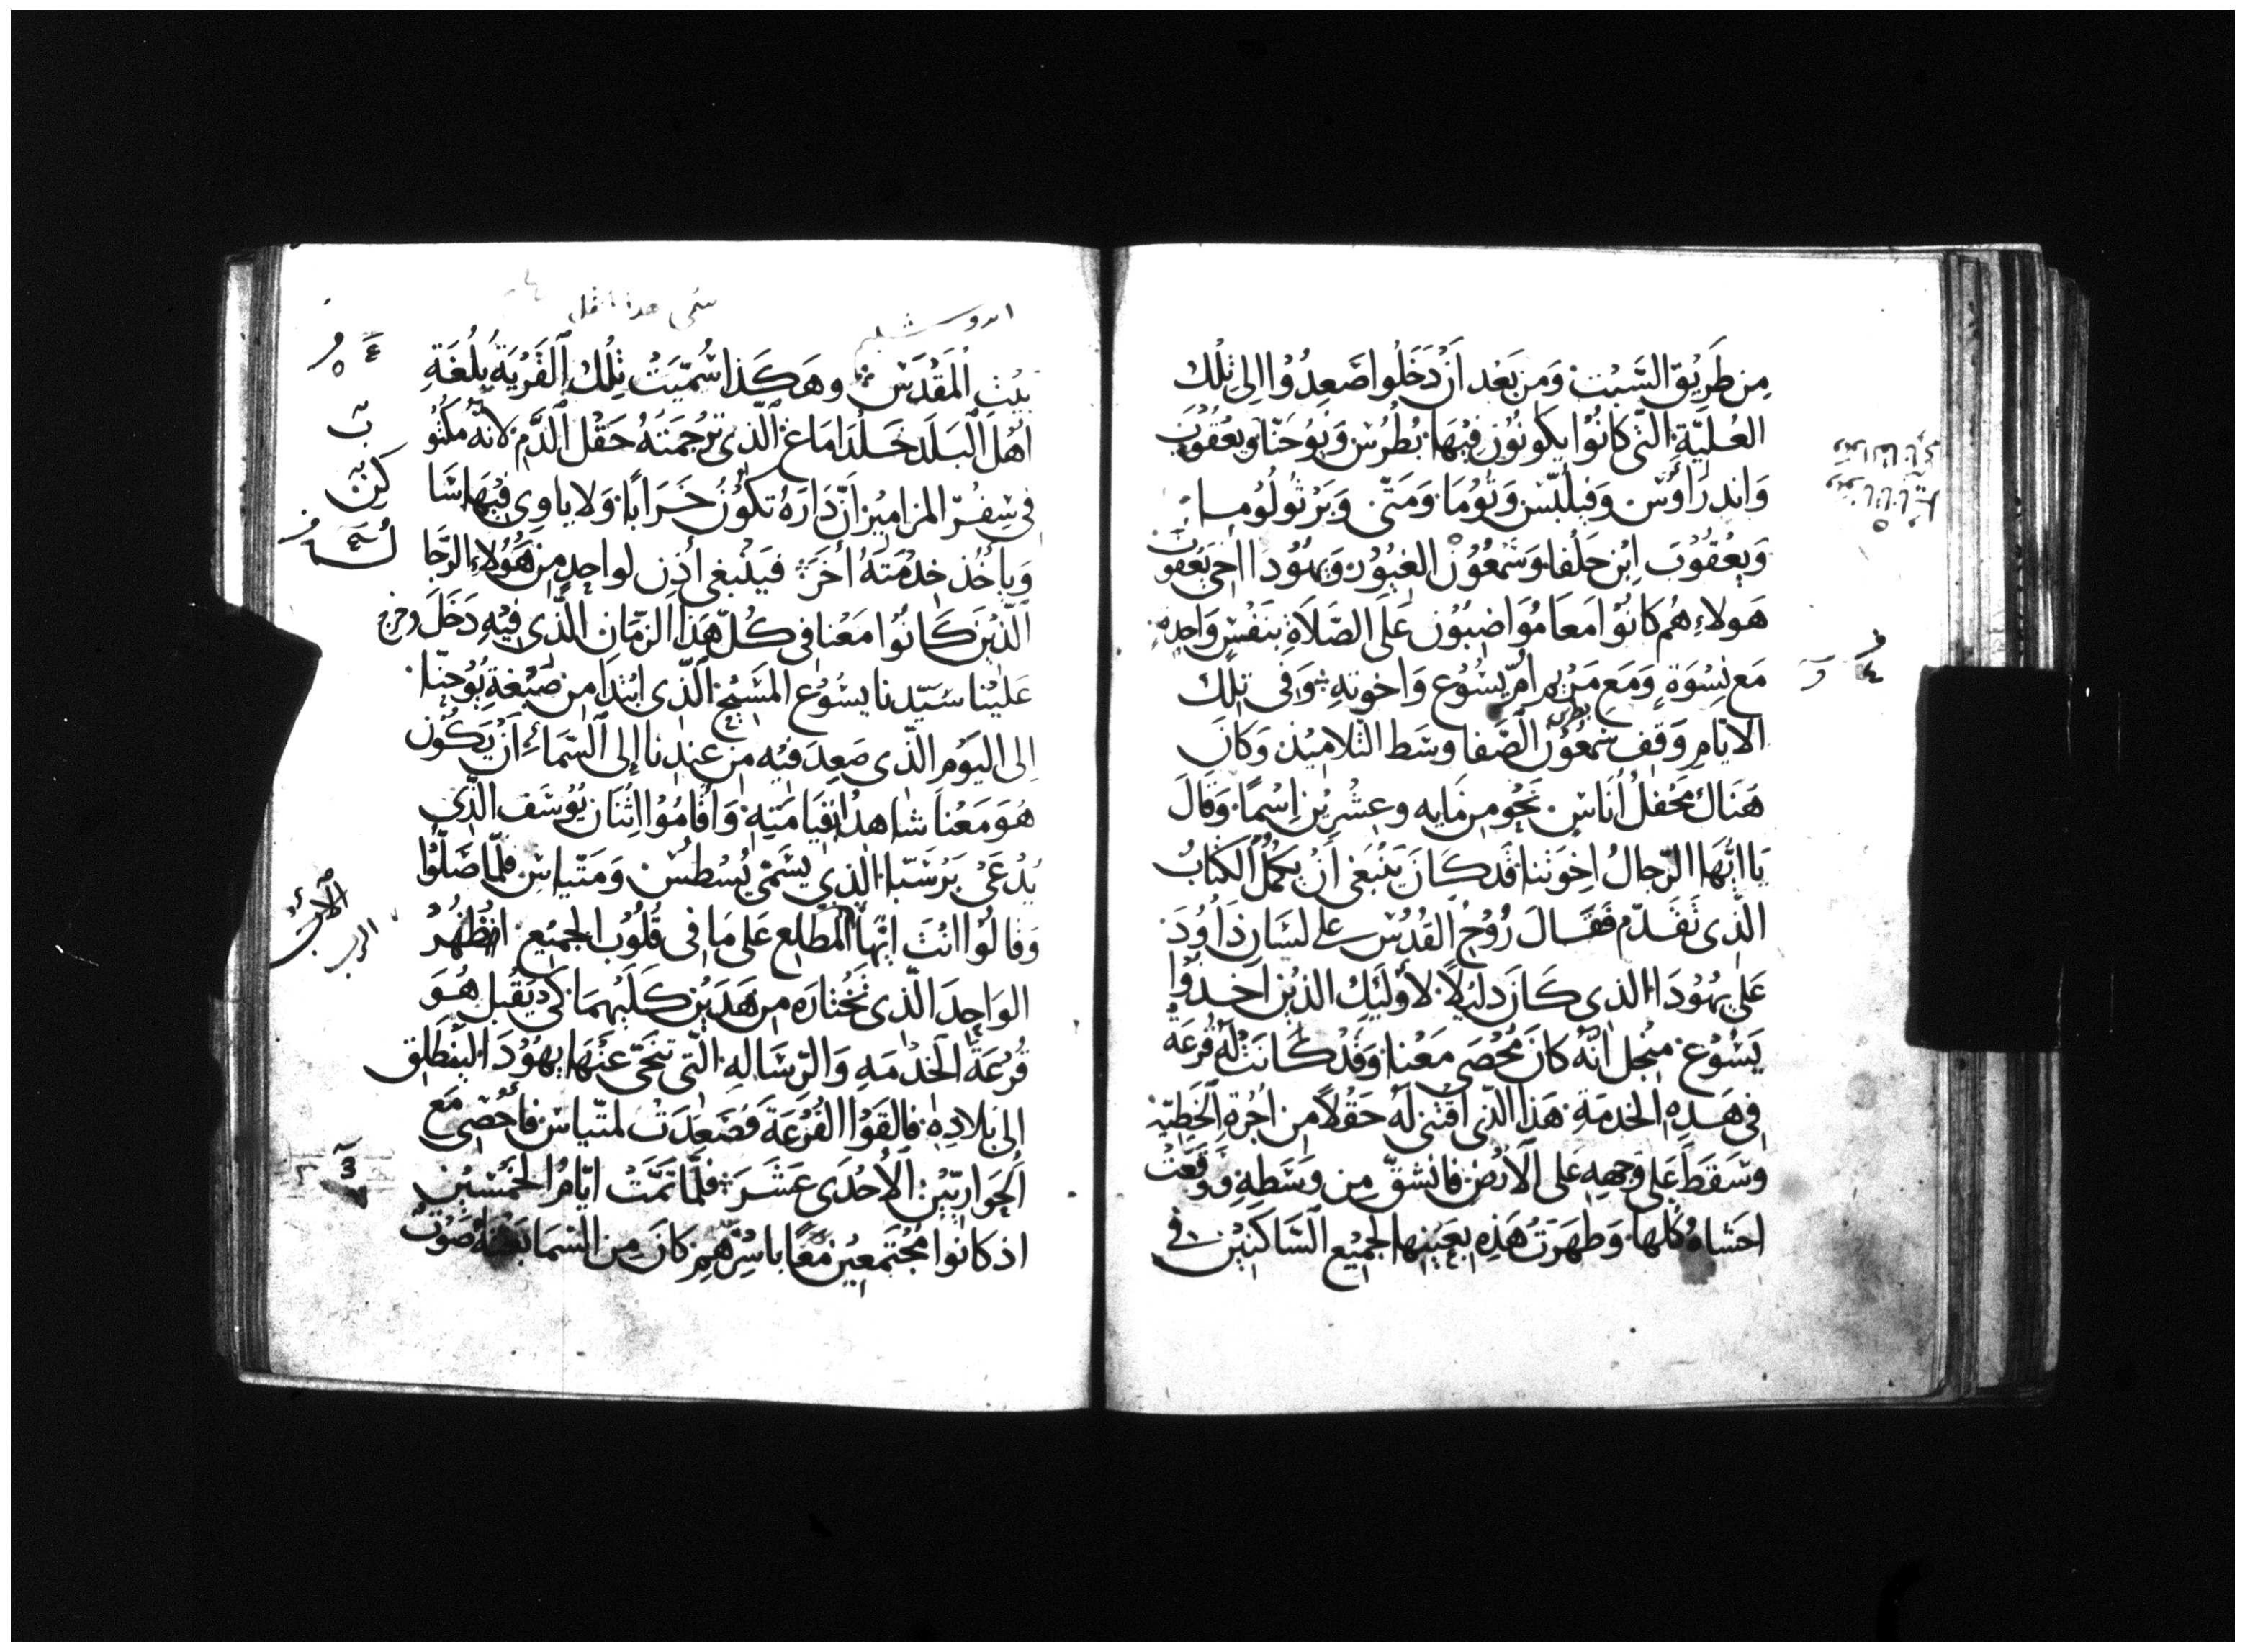 مِن طَرِيْق السَّبْت وَمِن بَعْد اَنْ دَخَلُوا صَعِدُوْا اِلى تِلْكَ
العُلِيّةِ الَّتي كَانُوْا يَكُونُوْن فِيْهَا بُطْرُسْ وَيُوْحَنّا وَيَعْقُوْبَ
وَاندرَاوُسْ وَفِيلِبّسْ وَتُوْمَا وَمَتّى وَبَرْثُولُومَا
وَيَعْقُوْبَ اِبْن حَلْفا وَشَمْعُوْنْ الغَيُوْر وَيَهُوْدا اخي يَعْقُوب
هَولاءِ هُم كَانُوْا مَعًا مُوَاضِبُوْن عَلَى الصَّلَاةِ بِنَفْسٍ وَاحِدِةٍ
مَع نِسْوَةٍ وَمَعَ مَرْيم اُمّ يَسُوْع وَاخوتهِ وَفي تِلْكَ
الايّامِ وَقِفَ شَمعُوْن الصَّفا وسَط التّلامِيْذ وَكَانَ
بطرس
هَنَاكَ مَحْفلُ اُنَاسٍ نَحْو مِن مَايه وعِشْرِيْن اِسْمًا وَقَالَ
يَا ايُّهَا الرّجالُ اِخوَتنا قَد كَانَ يَنْبَغي اَنْ يَكمُلُ الكِتَابُ
الّذي تَقَدّم فَقَالَ رُوْحُ القُدُسْ على لِسَانِ دَاوُدَ
عَلى يَهُوْدَا الذي كَانَ دَلِيْلاً لأُولَئِكَ الذيْن اَخَذوْا
يَسُوْع مِنْجل انَّهُ كَانَ مُحْصَى مَعْنا وَقَدْ كَانَتْ لَهُ قُرعَهْ
فِي هَذِهِ الخدمَةِ هَذا الّذي اَقتَنى لَهُ حَقْلاً مِن اُجْرةِ الخَطِيّه
وسَقَطَ عَلى وَجههِ عَلى الأرضْ فانْشَقّ مِن وَسَطِهِ وَوقَعَتْ
احَشاهُ كُلها وَظهَرَتْ هَذِهِ بِعَيْنِها لجَمِيْع السَّاكنِيْن في
اوروشليم
سمي هذا
بَيْت المَقْدَسْ وهَكَذا سُمّيَتْ تِلْكَ القَرْيَةُ بِلُغَةِ
اَهْل البَلَد حَلْدَامَاغ الّذي تَرْجمَتهُ حَقْل الدَّمِ لانّهُ مَكْتُو
في سِفْرِ المزَامِيْر اَنّ دَارَهُ تَكُوْنُ خَرَابًا وَلا ياوِي فِيْهَا سَا
وَيأخُذ خِدْمَتَهُ أخَرَ فَيَنْبغي أذن لواحِدٍ مِن هَؤلاءِ الرّجَا
الّذيْن كَانُوْا مَعْنا في كُلّ هَذا الزّمَان الّذي فِيْهِ دَخَلَ وخرج
عَلَيْنا سَيّدنا يسُوْع المَسِيْح الّذي ابْتَدَا مِن صَبْغَةِ يُوْحَنّا
اِلى اليَوْم الّذي صَعِدَ فِيْهِ مِن عِنْدنا اِلى السّمَاءِ اَنْ يَكُوْن
هُوَ مَعْنا شاهدًا لقيَامَتِهِ وَاَقَامُوْا اثنَان يُوْسَف الّذي
يُدْعَى بَرْسَبّا الذِي يسَمّى يُسْطُسْ وَمَتّياسْ فلمّا صَلَّوْا
وَقَالُوْا انْتَ ايّها المطّلع عَلى مَا في قُلُوْب الجميْع اظهرْ
الوَاحِدَ الّذي تَخْتارَه مِن هَدَيْن كِلَيهِمَا كي يَقْبل هُوَ
قُرْعَةَ الخدْمَهِ وَالرّسَالهِ الّتي تنحّى عَنْهَا يهُوْدَا ليَنْطَلِق
اِلى بَلادِهِ فالقَوْا القُرْعَةَ فَصَعِدَتْ لمَتّياسْ فأُحْصِي مَعَ
الحوَاريّيْن الاُحْدَى عَشَرَ فلمّا تَمَّتْ ايّامُ الخَمْسِيْن
اذ كانوا مُجْتَمعِيْن مَعًا باسْرّهِم كَانَ مِن السّمَا بَغْتةً صَوْت
الرب